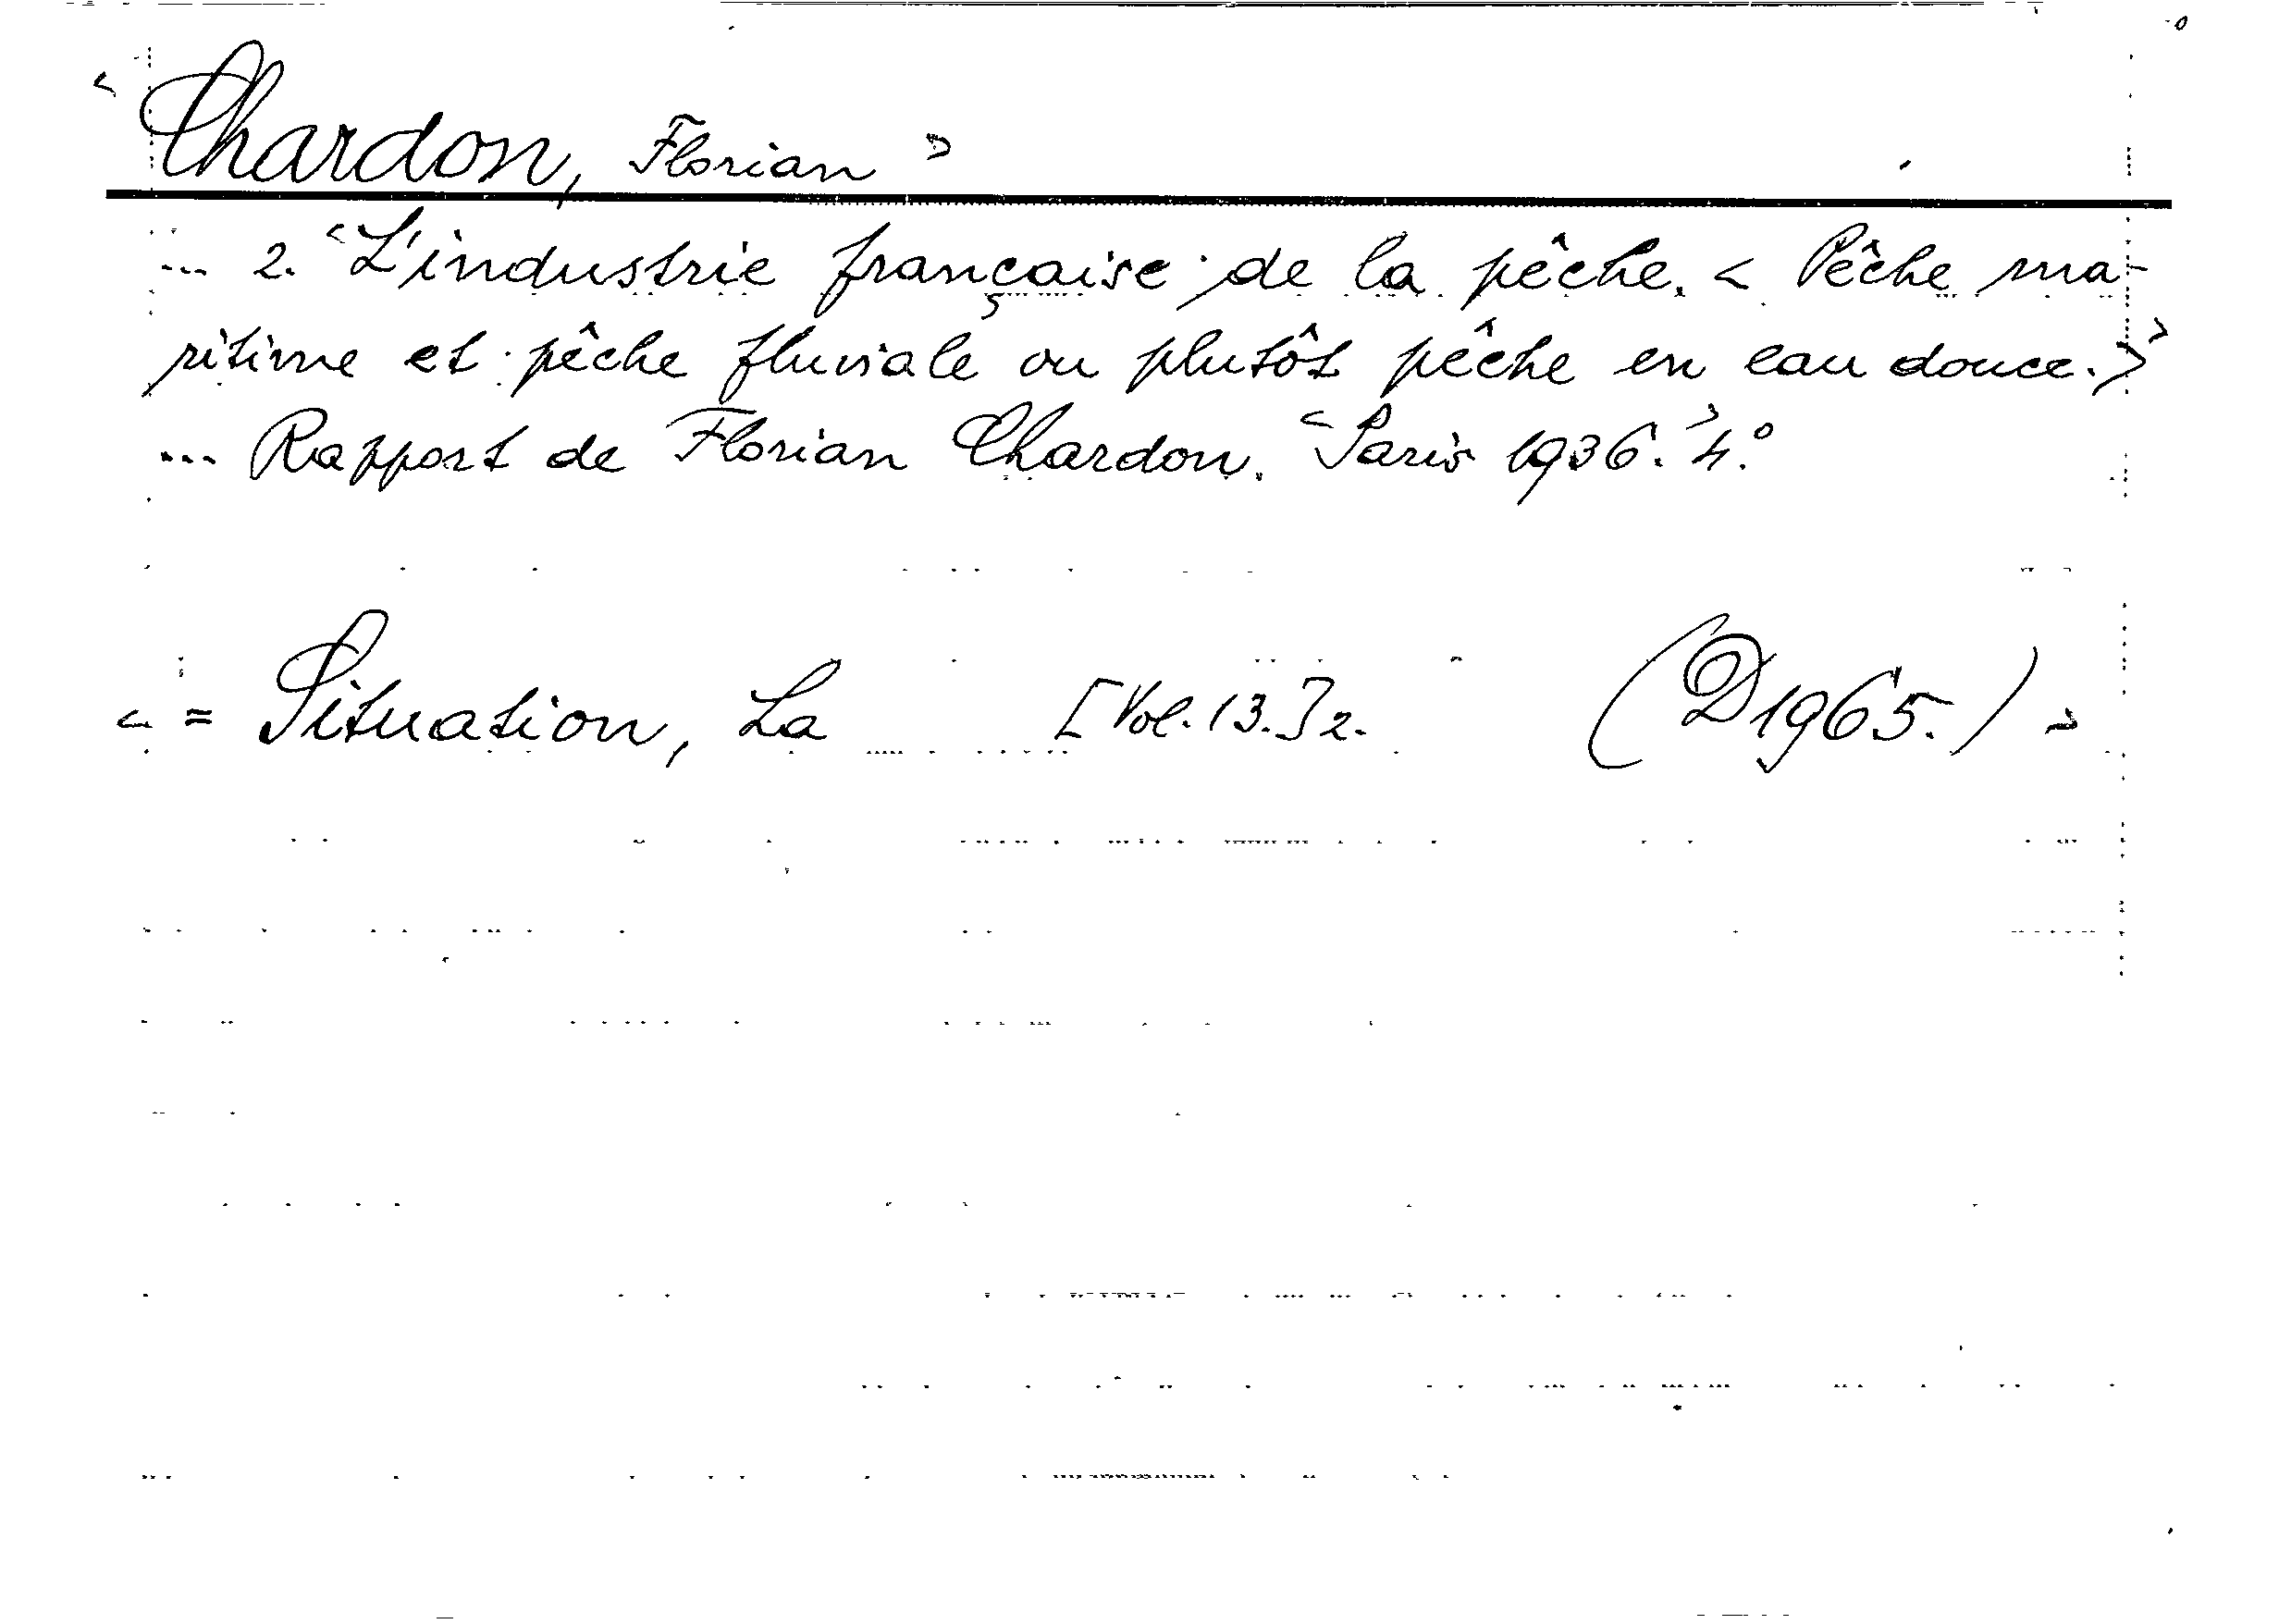 < Chardon, Florian >
... 2. <L'industrie française de la pêche. < Pêche ma-
ritime et pêche fluviale ou plutôt pêche en eau douce.>>
... Rapport de Florian Chardon. <Paris 1936.> 4.°
< = Situation, La [Vol. 13.] 2. (D1965.) >